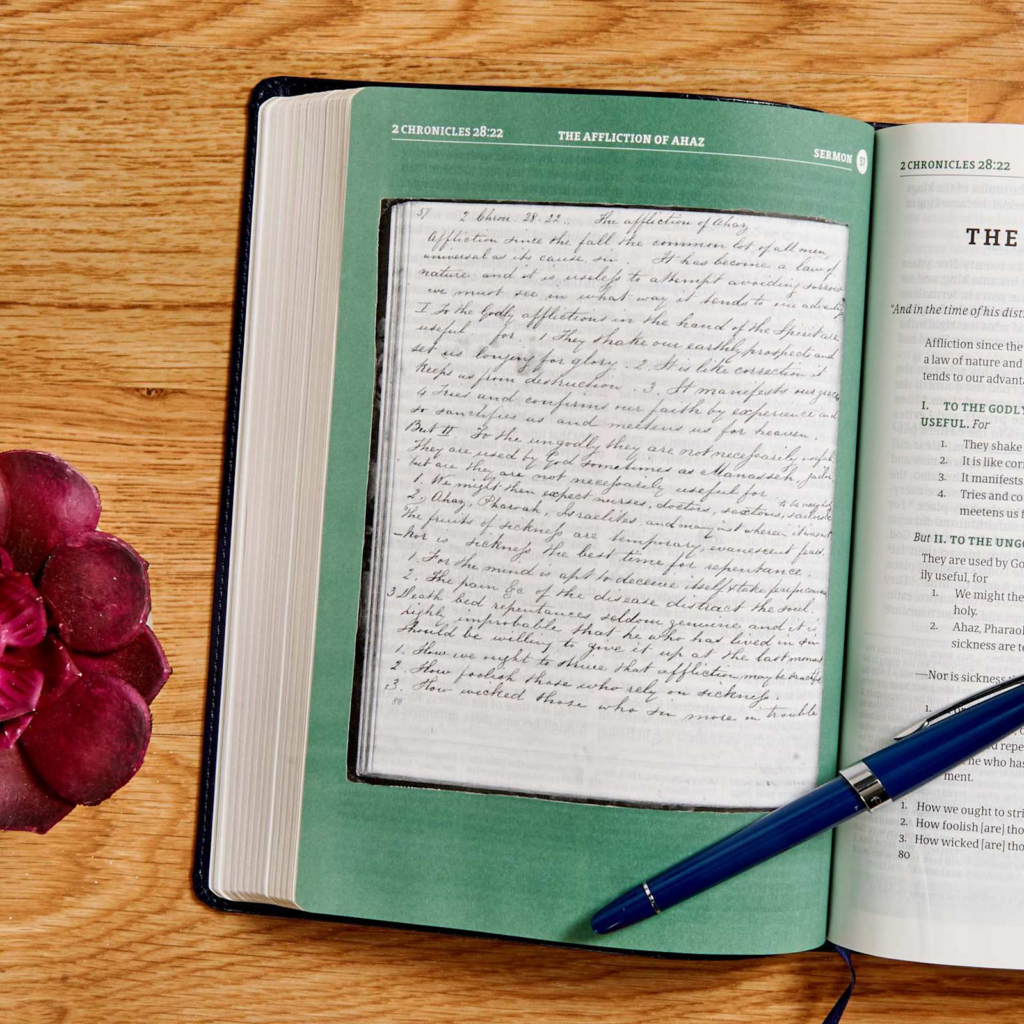 2 CHRONICLES 28:22
THE AFFLICTION OF AHAZ
SERMON 57
57 2 Chron. 28. 22. The affliction of Ahaz
Affliction since the fall the common lot of all men,
universal as its cause, sin. It has become a law of
nature and it is useless to attempt avoiding sorrow
we must see in what way it tends to our advantage
I To the Godly afflictions in the hand of the Spirit are
useful for. 1 They shake our earthly prospects and
set us longing for glory. 2. It is like correction, it
keeps us from destruction. 3. It manifests our graces
4 Tries and confirms our faith by experience and
so sanctifies us and meetens us for heaven.
But II To the ungodly they are not necessarily useful
They are used by God sometimes as Manasseh, jailor
but are they are not necessarily useful for
1. We might then expect nurses, doctors, sextons, to be very holy
2. Ahaz, Pharoah, Israelites, and many
The fruits of sickness are temporary, evanescent
—Nor is sickness the best time for repentance.
1. For the mind is apt to deceive itself
2. The pain &c of the disease distract the soul.
3. Death bed repentances seldom genuine and it is
highly improbable that he who has lived in sin
should be willing to give it up at the last moment
1. How we ought to strive that affliction may be
2. How foolish those who rely on sickness.
3. How wicked those who sin more in trouble
80
2 CHRONICLES 28:22
THE
"And in the time of his dist
Affliction since the
a law of nature and
tends to our advanta
I. TO THE GODLY
USEFUL. For
1. They shake
2. It is like cor
3. It manifests
4. Tries and co
meetens us f
But II. TO THE UNGO
They are used by Go
ily useful, for
1. We might the
holy.
2. Ahaz, Pharaoh
sickness are te
—Nor is sickness
1.
repe
he who has
ment.
1. How we ought to stri
2. How foolish [are] tho
3. How wicked [are] tho
80